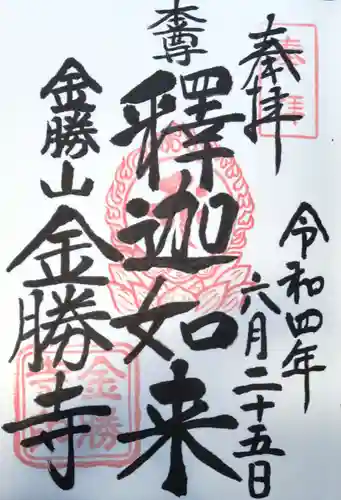 奉拝
令和四年
六月二十五日
本尊
釋迦如来
金勝山
金勝寺
奉拝
金勝
寺印